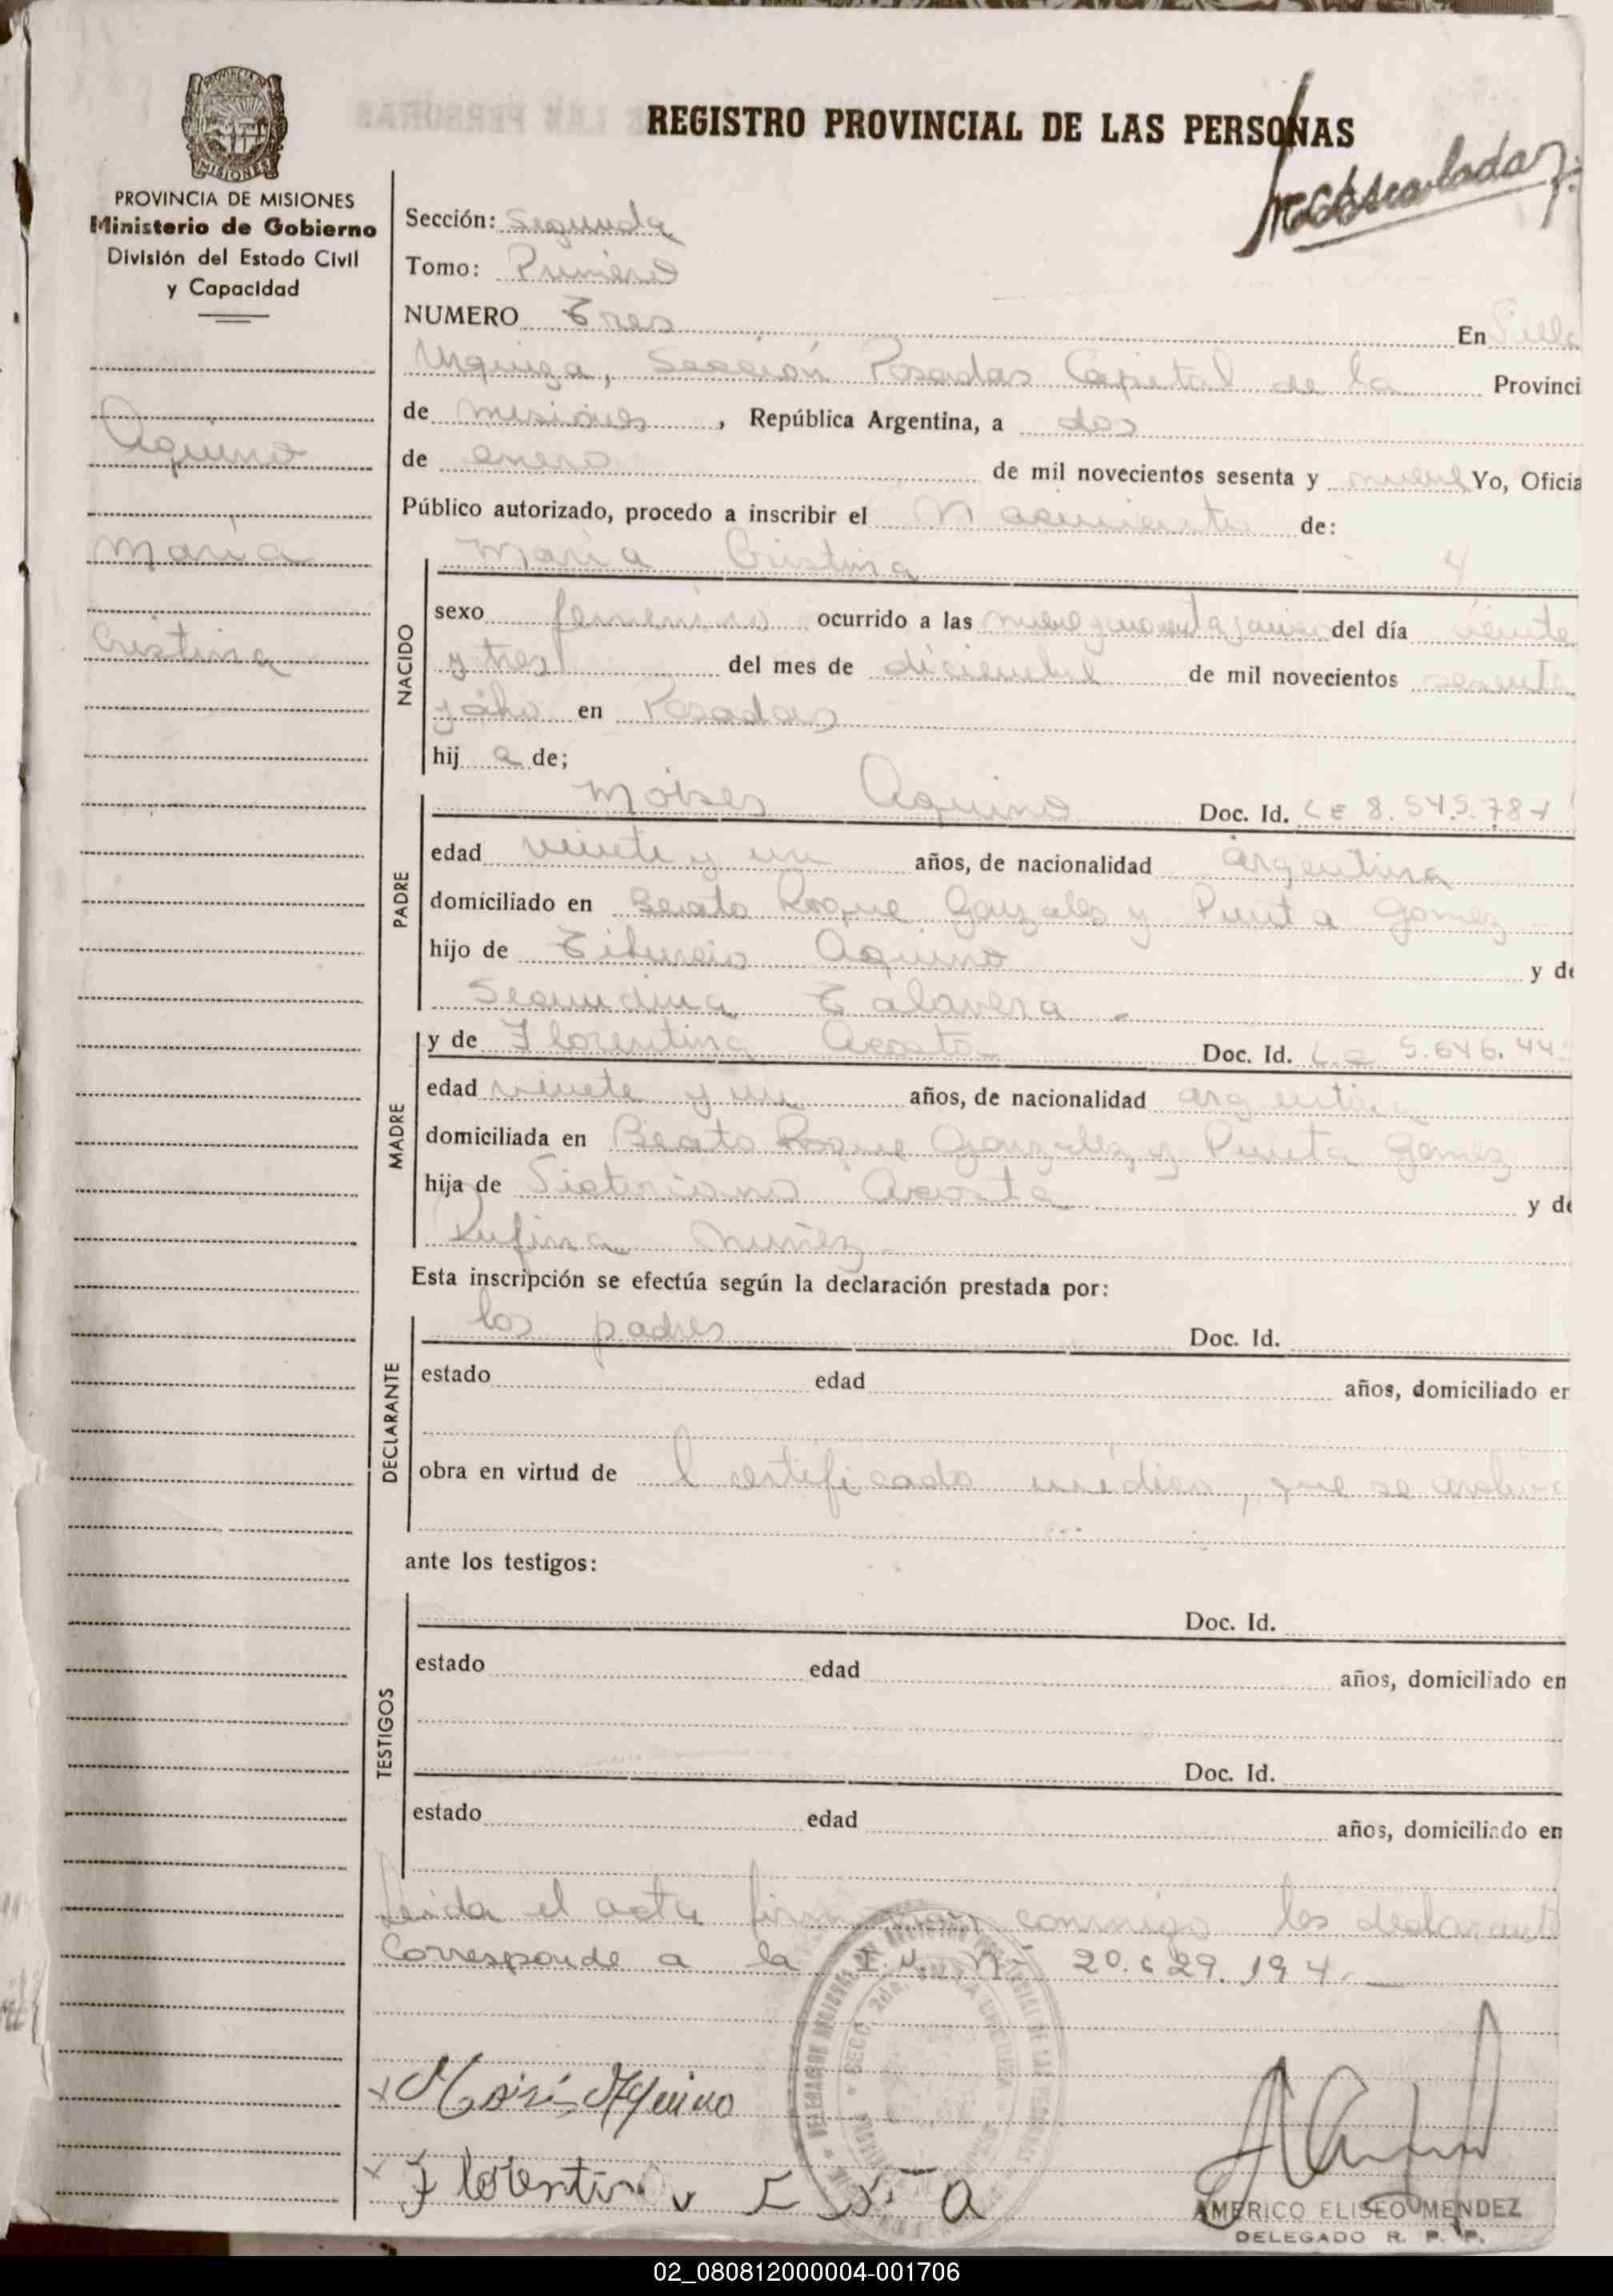 REGISTRO PROVINCIAL DE LAS PERSONAS
PROVINCIA DE MISIONES
Ministerio de Gobierno
División del Estado Civil
y Capacidad
Aquino
María
Cristina
Sección: Segunda
Tomo: Primero
NUMERO Tres En Villa
Urquiza, Sección Posadas Capital de la Provinci
de Misiones, República Argentina, a dos
de enero de mil novecientos sesenta y nueve Yo, Oficia
Público autorizado, procedo a inscribir el Nacimiento de:
NACIDO
María Cristina
sexo femenino ocurrido a las nueve y del día veinte
y tres del mes de diciembre de mil novecientos sesenta
y ocho en Posadas
hij a de;
PADRE
Moises Aquino Doc. Id. LE 8.545.787
edad veinte y un años, de nacionalidad argentina
domiciliado en Beato Roque Gonzales y Punta Gomez
hijo de Tiburcio Aquino y de
Secundina Talavera
MADRE
y de Florentina Acosta Doc. Id. L.C 5.646.44
edad veinte y un años, de nacionalidad argentina
domiciliada en Beato Roque Gonzalez y Punta Gomez
hija de Acosta y de
Rufina Nuñez
Esta inscripción se efectúa según la declaración prestada por:
DECLARANTE
los padres Doc. Id.
estado edad años, domiciliado en
obra en virtud de l certificado médico, que se archiva
ante los testigos:
TESTIGOS
Doc. Id.
estado edad años, domiciliado en
Doc. Id.
estado edad años, domiciliado en
Leida el acta firman conmigo los declarant
Corresponde a la N° 20.629.194.
Moisés Aquino
Florentina
AMERICO ELISEO MENDEZ
DELEGADO R. P. P.
02_080812000004-001706